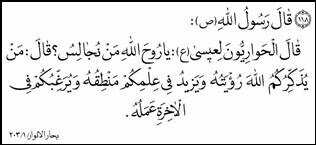 (۱۱۸) قالَ رَسُولُ اللهِ (ص):
قالَ الْحَوارِيُّونَ لِعيسٰى (ع): يا رُوحَ اللهِ مَنْ نُجالِسُ؟ قالَ: مَنْ
يُذَكِّرُكُمُ اللهَ رُؤْيَتُهُ وَيَزيدُ فى عِلْمِكُمْ مَنْطِقُهُ وَيُرَغِّبُكُمْ فِى
الْاخِرَةِ عَمَلُهُ.
بحار الانوار ۲۰۳/۱